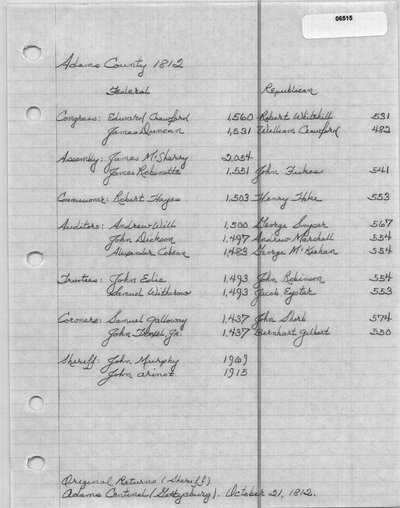 06515
Adams County 1812
Federal Republican
Congress: Edward Crawford 1,560 Robert Whitehill 531
James Duncan 1,531 William Crawford 482
Assembly: James McSherry 2,054
James Robinette 1,551 John Fickes 541
Commissioner: Robert Hayes 1,503 Henry Hoke 553
Auditors: Andrew Will 1,500 George Smyser 567
John Dickson 1,497 Andrew Marshall 554
Alexander Cobean 1,483 George McKeehan 554
Trustees: John Edie 1,493 John Robinson 554
Samuel Withrow 1,493 Jacob Eyster 553
Coroners: Samuel Galloway 1,437 John Shorb 574
John Troxel, Jr. 1,437 Bernhart Gilbert 550
Sheriff: John Murphy 1969
John Arinot 1915
Original Returns (Sheriff)
Adams Centinel (Gettysburg). October 21, 1812.